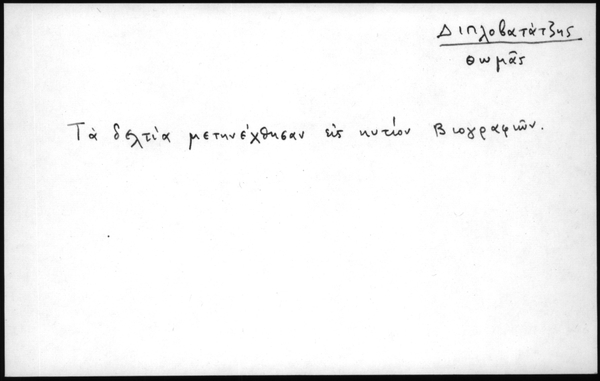 Διπλοβατάτζης
Θωμᾶς
Τὰ δελτία μετηνέχθησαν εἰς κυτίον Βιογραφιῶν.